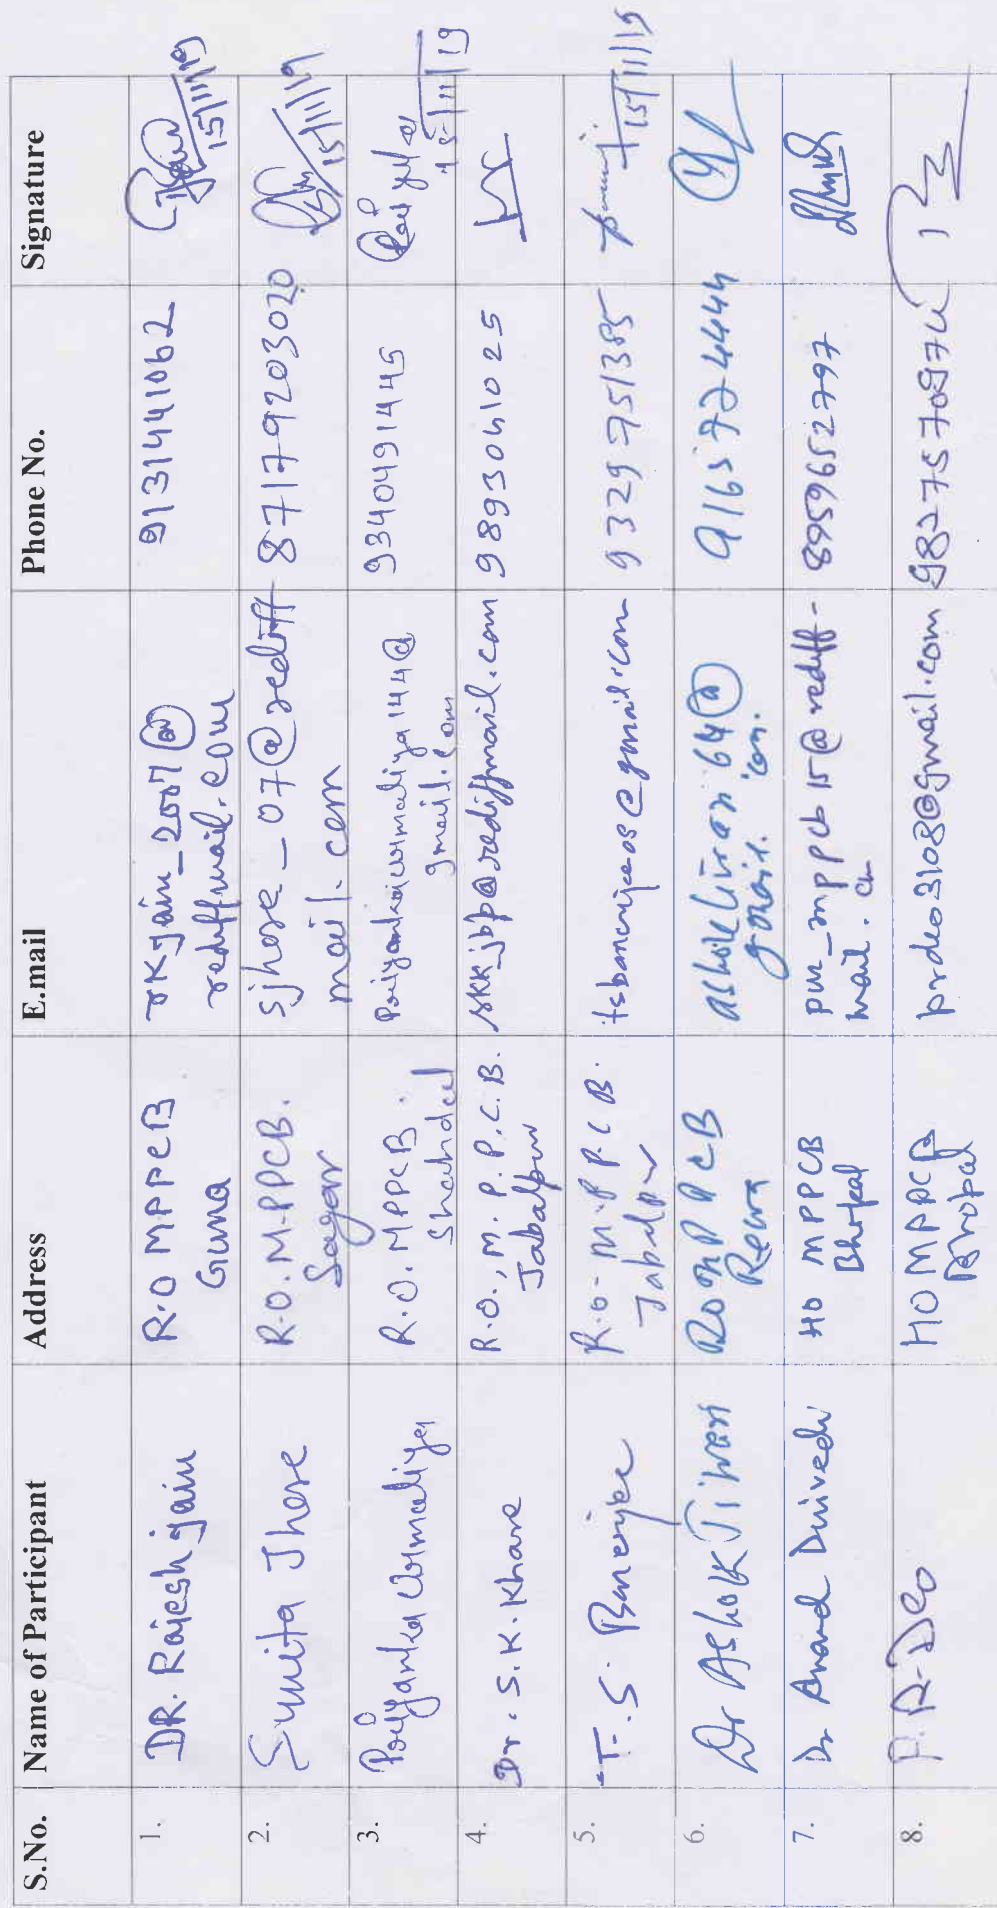 S.No. Name of Participant Address E.mail Phone No. Signature
1. DR. Rajesh Jain R.O MPPCB Guna rkjain_2007@ rediffmail.com 9131441062 15/11/19
2. Sunita Jhose R.O. M.PPCB. Sagar sjhose_07@rediff mail.com 8717920302 15/11/19
3. Priyanka Urmaliya R.O. MPPCB. Shahdol Priyankaurmaliya144@ gmail.com 9340491445 15/11/19
4. Dr. S.K. Khare R.O., M.P.P.C.B. Jabalpur skk_jbp@rediffmail.com 9893041025
5. T.S. Banerjee R.O. M.P.P.C.B. Jabalpur tsbanerjee08@gmail.com 9329751385 15/11/19
6. Dr Ashok Tiwari RO MPPCB Rewa ashoktivari64@ gmail.com. 9165724444
7. Dr Anand Dwivedi HO MPPCB Bhopal pur_mppcb15@rediff- mail.com 8959652797
8. P.R. Deo HO MPPCB Bhopal prdeo3108@gmail.com